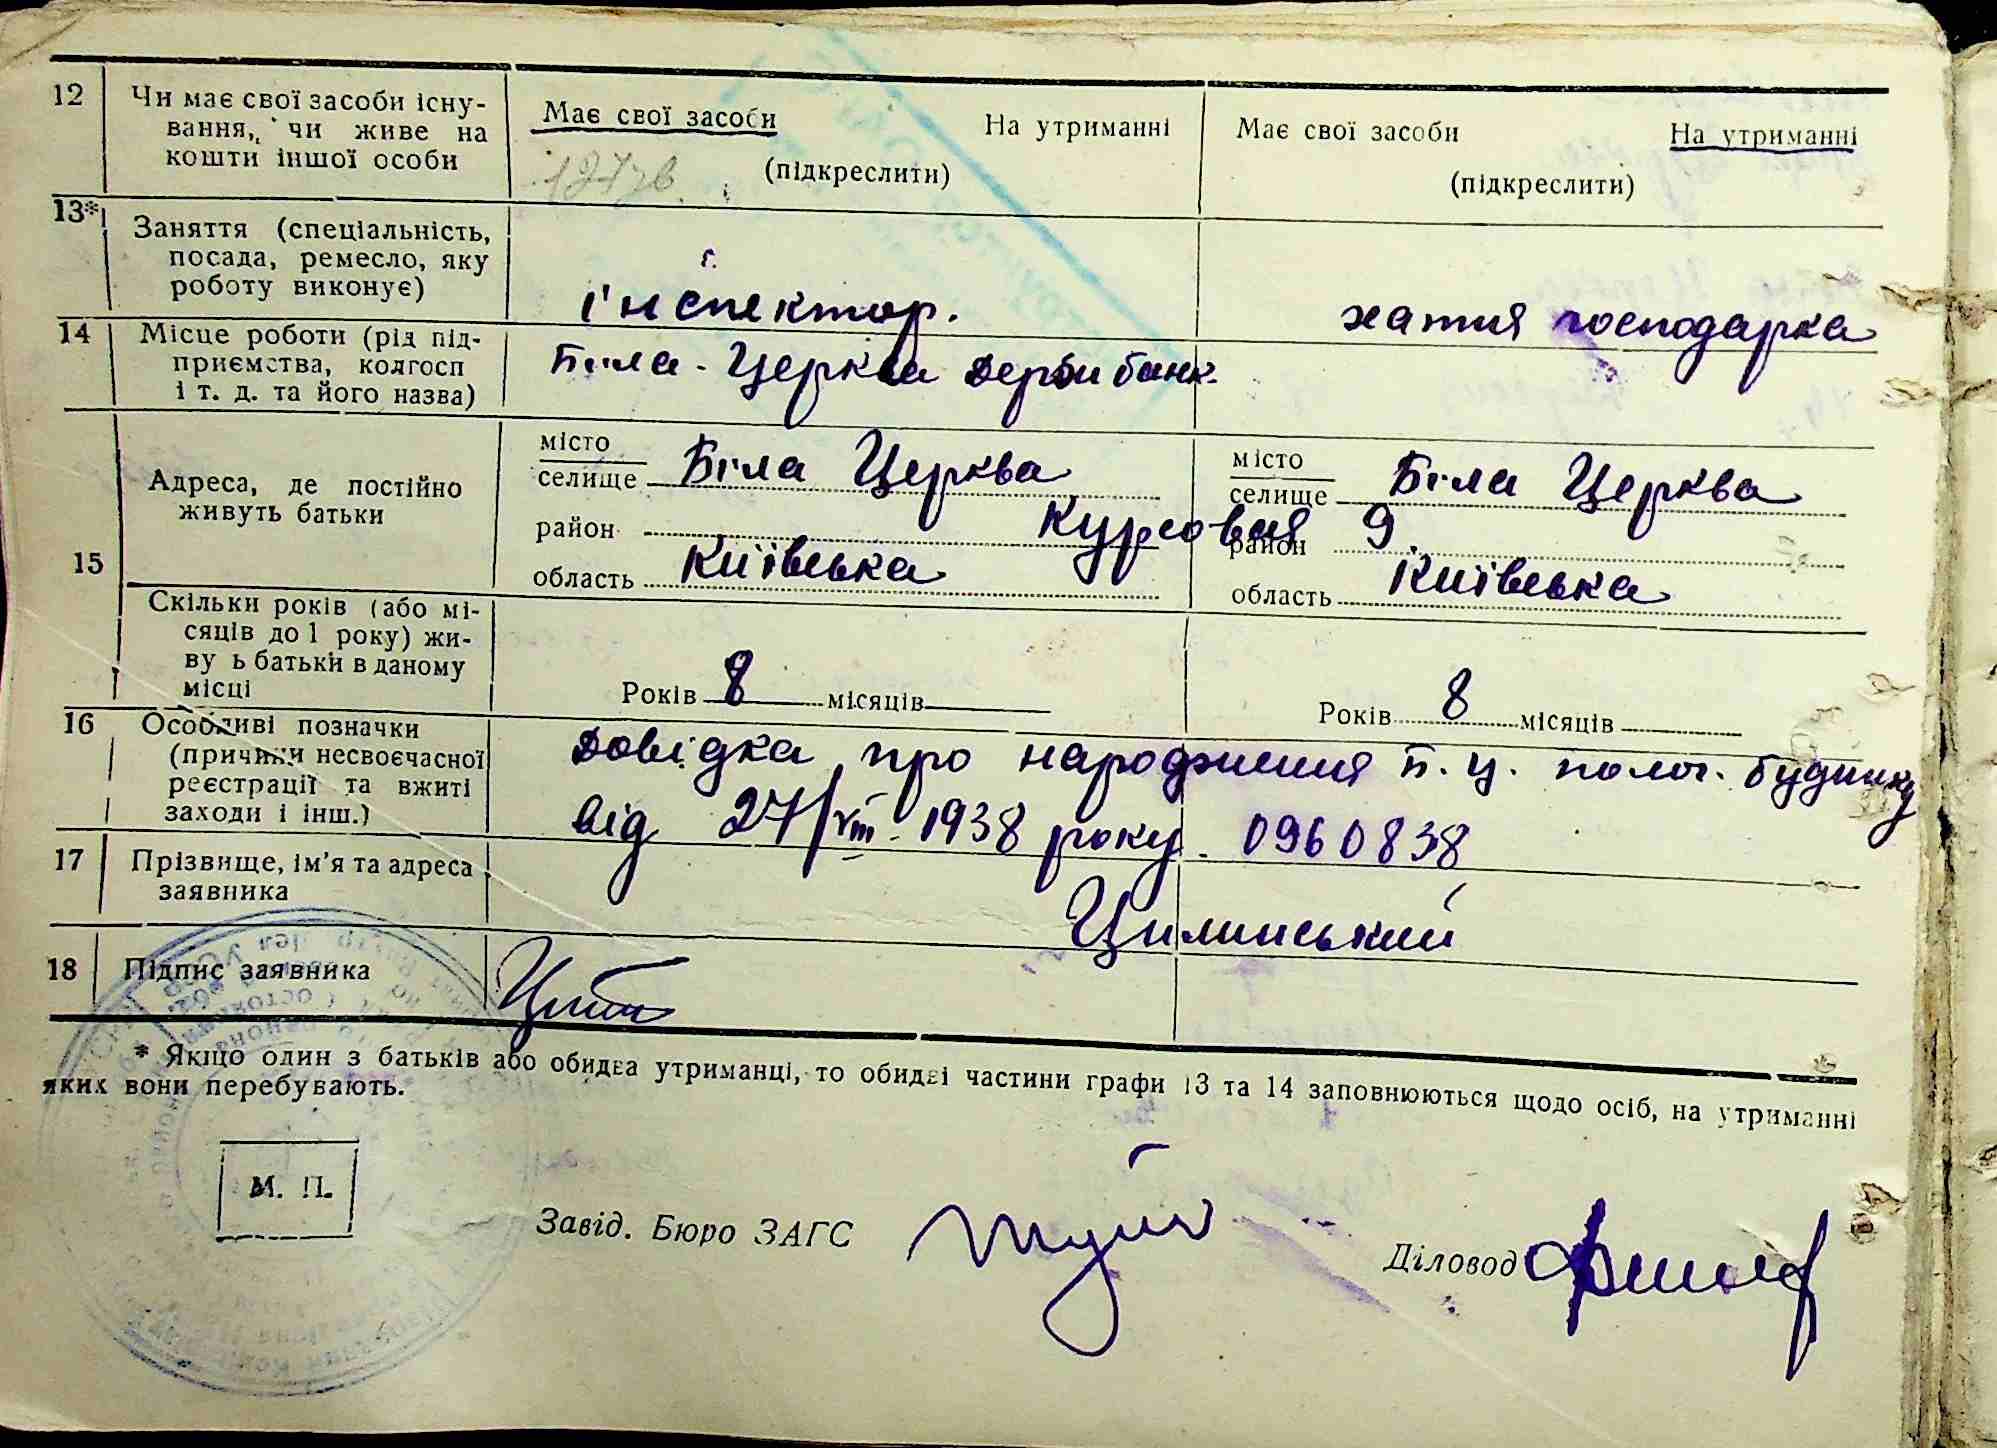 12 Чи має свої засоби існу-
вання, чи живе на
кошти іншої особи
Має свої засоби На утриманні
(підкреслити)
Має свої засоби На утриманні
(підкреслити)
13* Заняття (спеціальність,
посада, ремесло, яку
роботу виконує)
інспектор.
хатня господарка
14 Місце роботи (рід під-
приємства, колгосп
і т. д. та його назва)
Біла-Церква Держбанк.
15 Адреса, де постійно
живуть батьки
місто
селище Біла Церква
район
область Київська
Курсовая 9.
місто
селище Біла Церква
район
область Київська
Скільки років (або мі-
сяців до 1 року) жи-
ву ь батьки в даному
місці
Років 8 місяців
Років 8 місяців
16 Особливі позначки
(причини несвоєчасної
реєстрації та вжиті
заходи і інш.)
Довідка про народження Б.Ц. полог. будинку
від 27/VIII-1938 року. 0960838
17 Прізвище, ім'я та адреса
заявника
Цилинський
18 Підпис заявника
* Якщо один з батьків або обидва утриманці, то обидві частини графи 13 та 14 заповнюються щодо осіб, на утриманні
яких вони перебувають.
М. П.
Завід. Бюро ЗАГС
Діловод